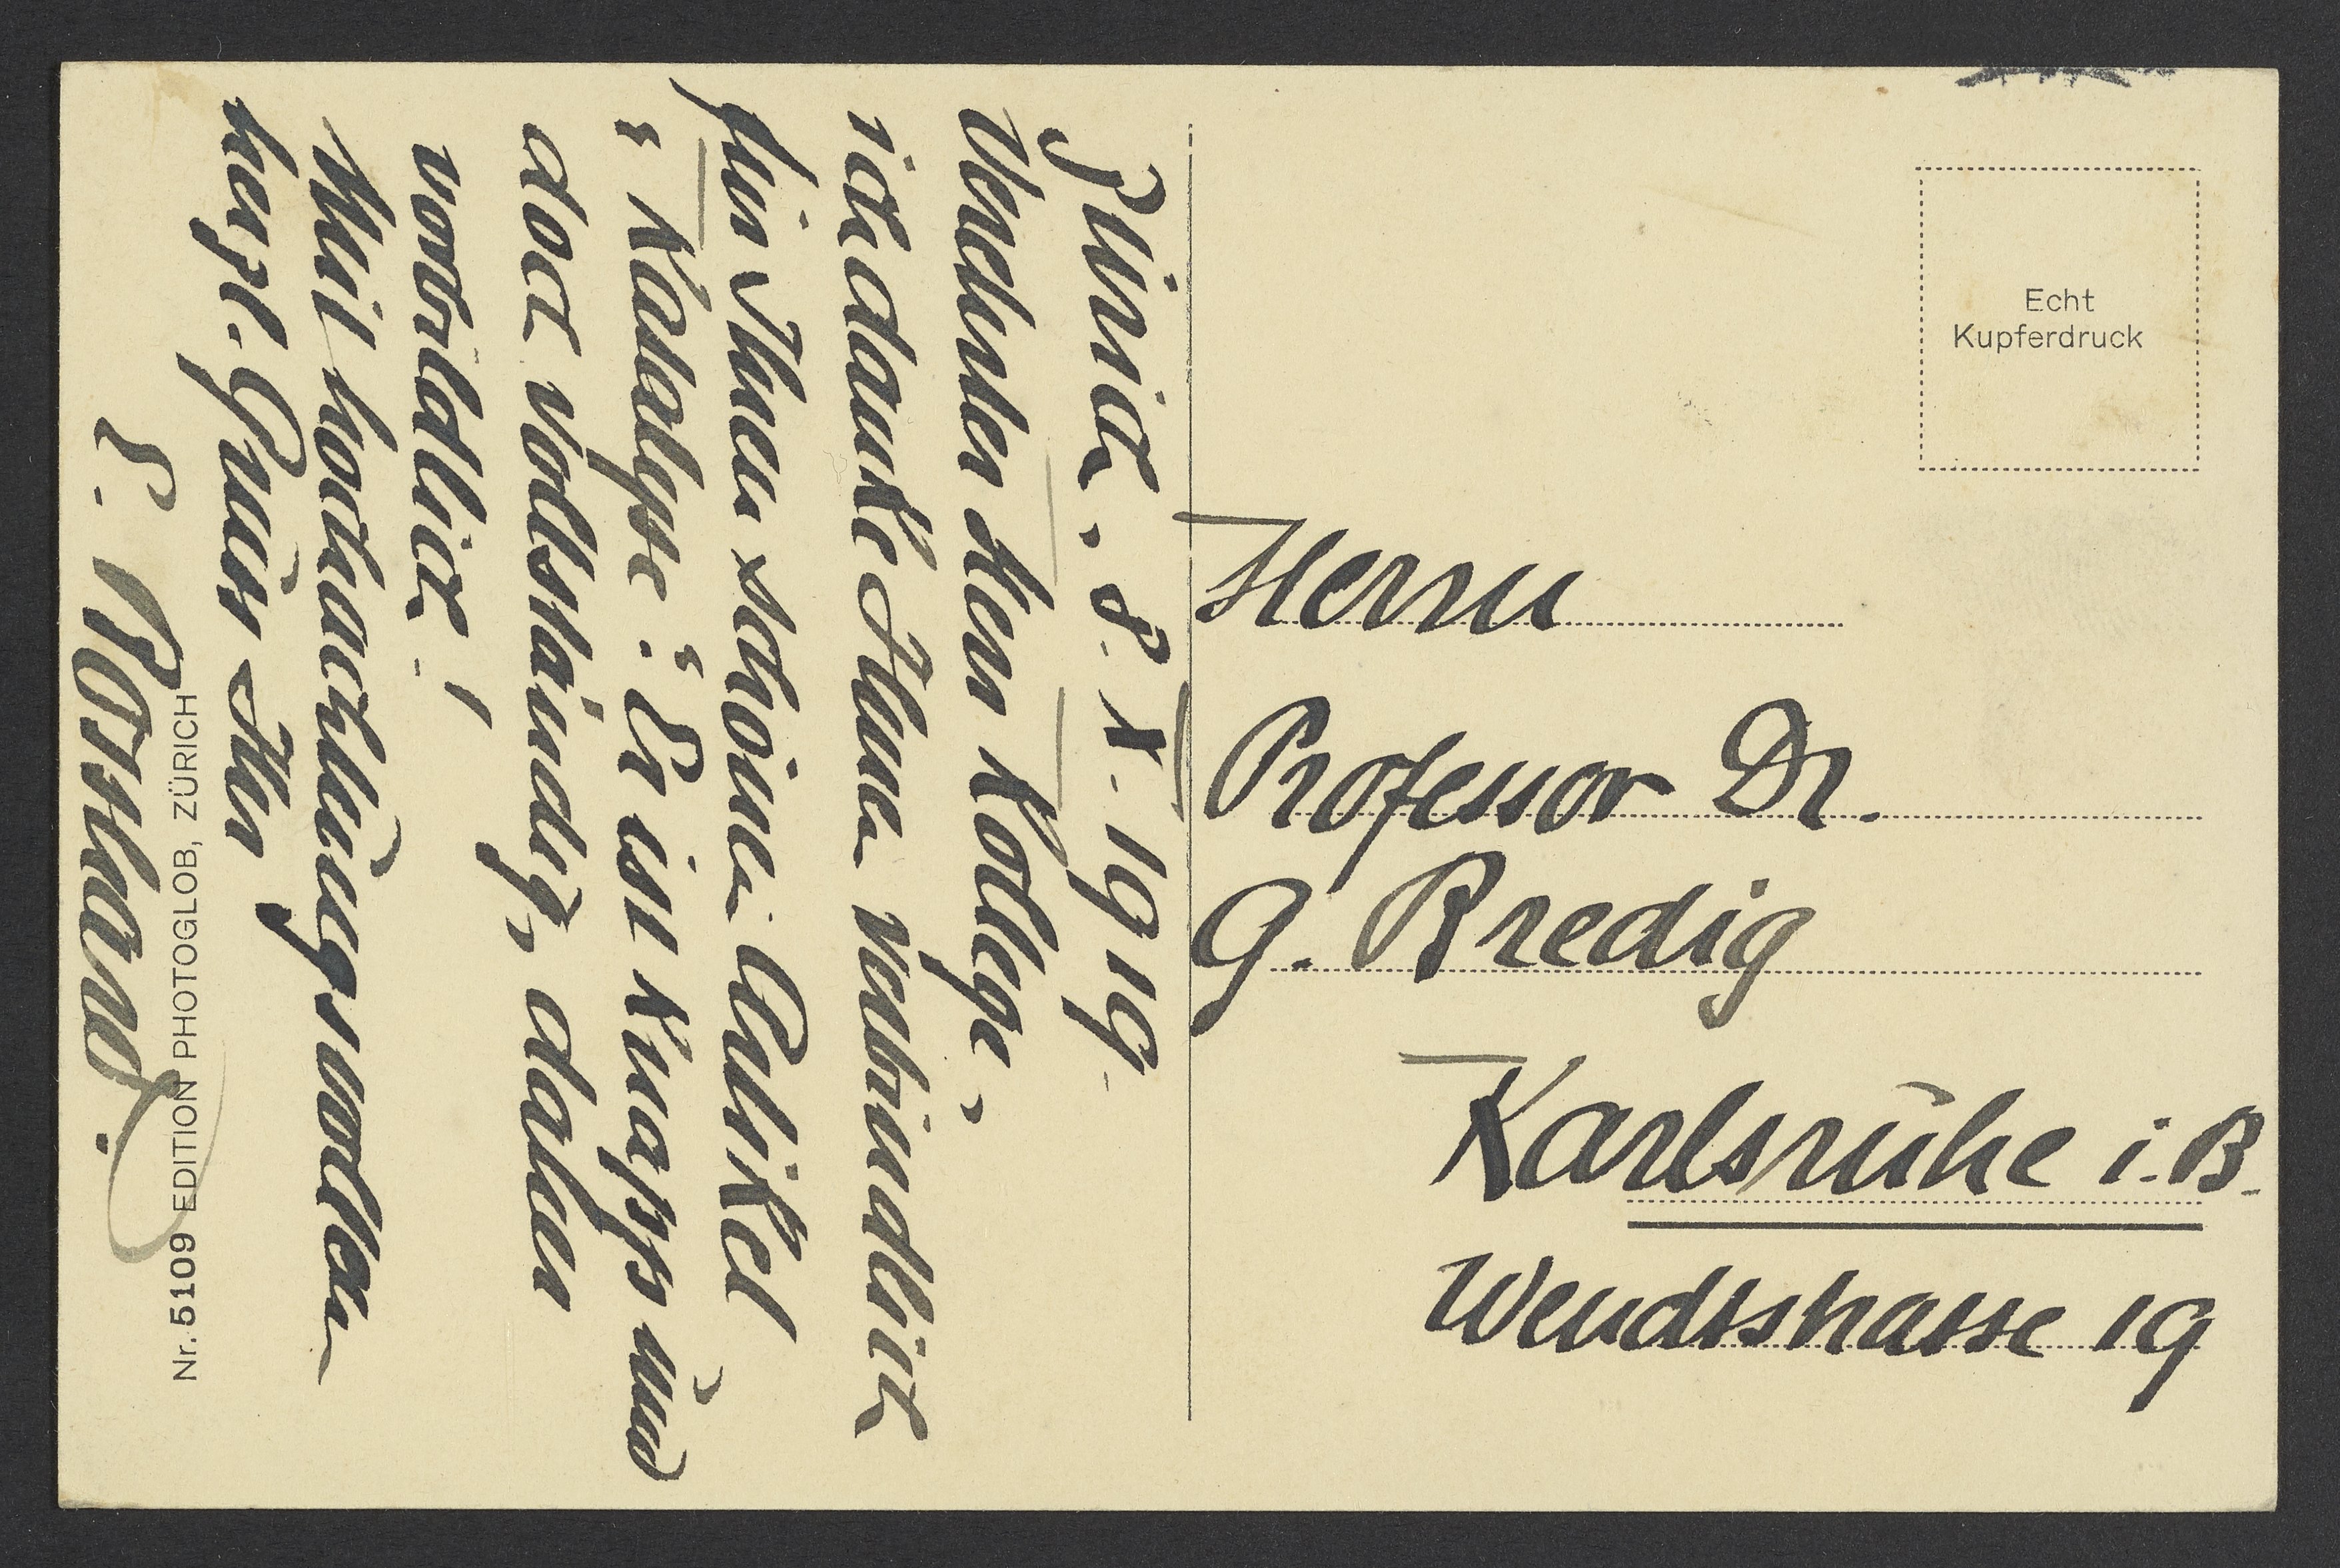 Zürich, 8. X. 1919.
Verehrter Herr Kollege,
ich danke Ihnen verbindlich
für Ihren schönen Artikel
„Katalyse“. Er ist knapp und
doch vollständig, daher
vorbildlich!
Mit hochachtungsvollem
herzl. Gruss Ihr
Nr. 5109 EDITION PHOTOGLOB, ZÜRICH
Echt
Kupferdruck
Herrn
Professor Dr.
G. Bredig
Karlsruhe i. B.
Wendtstrasse 19